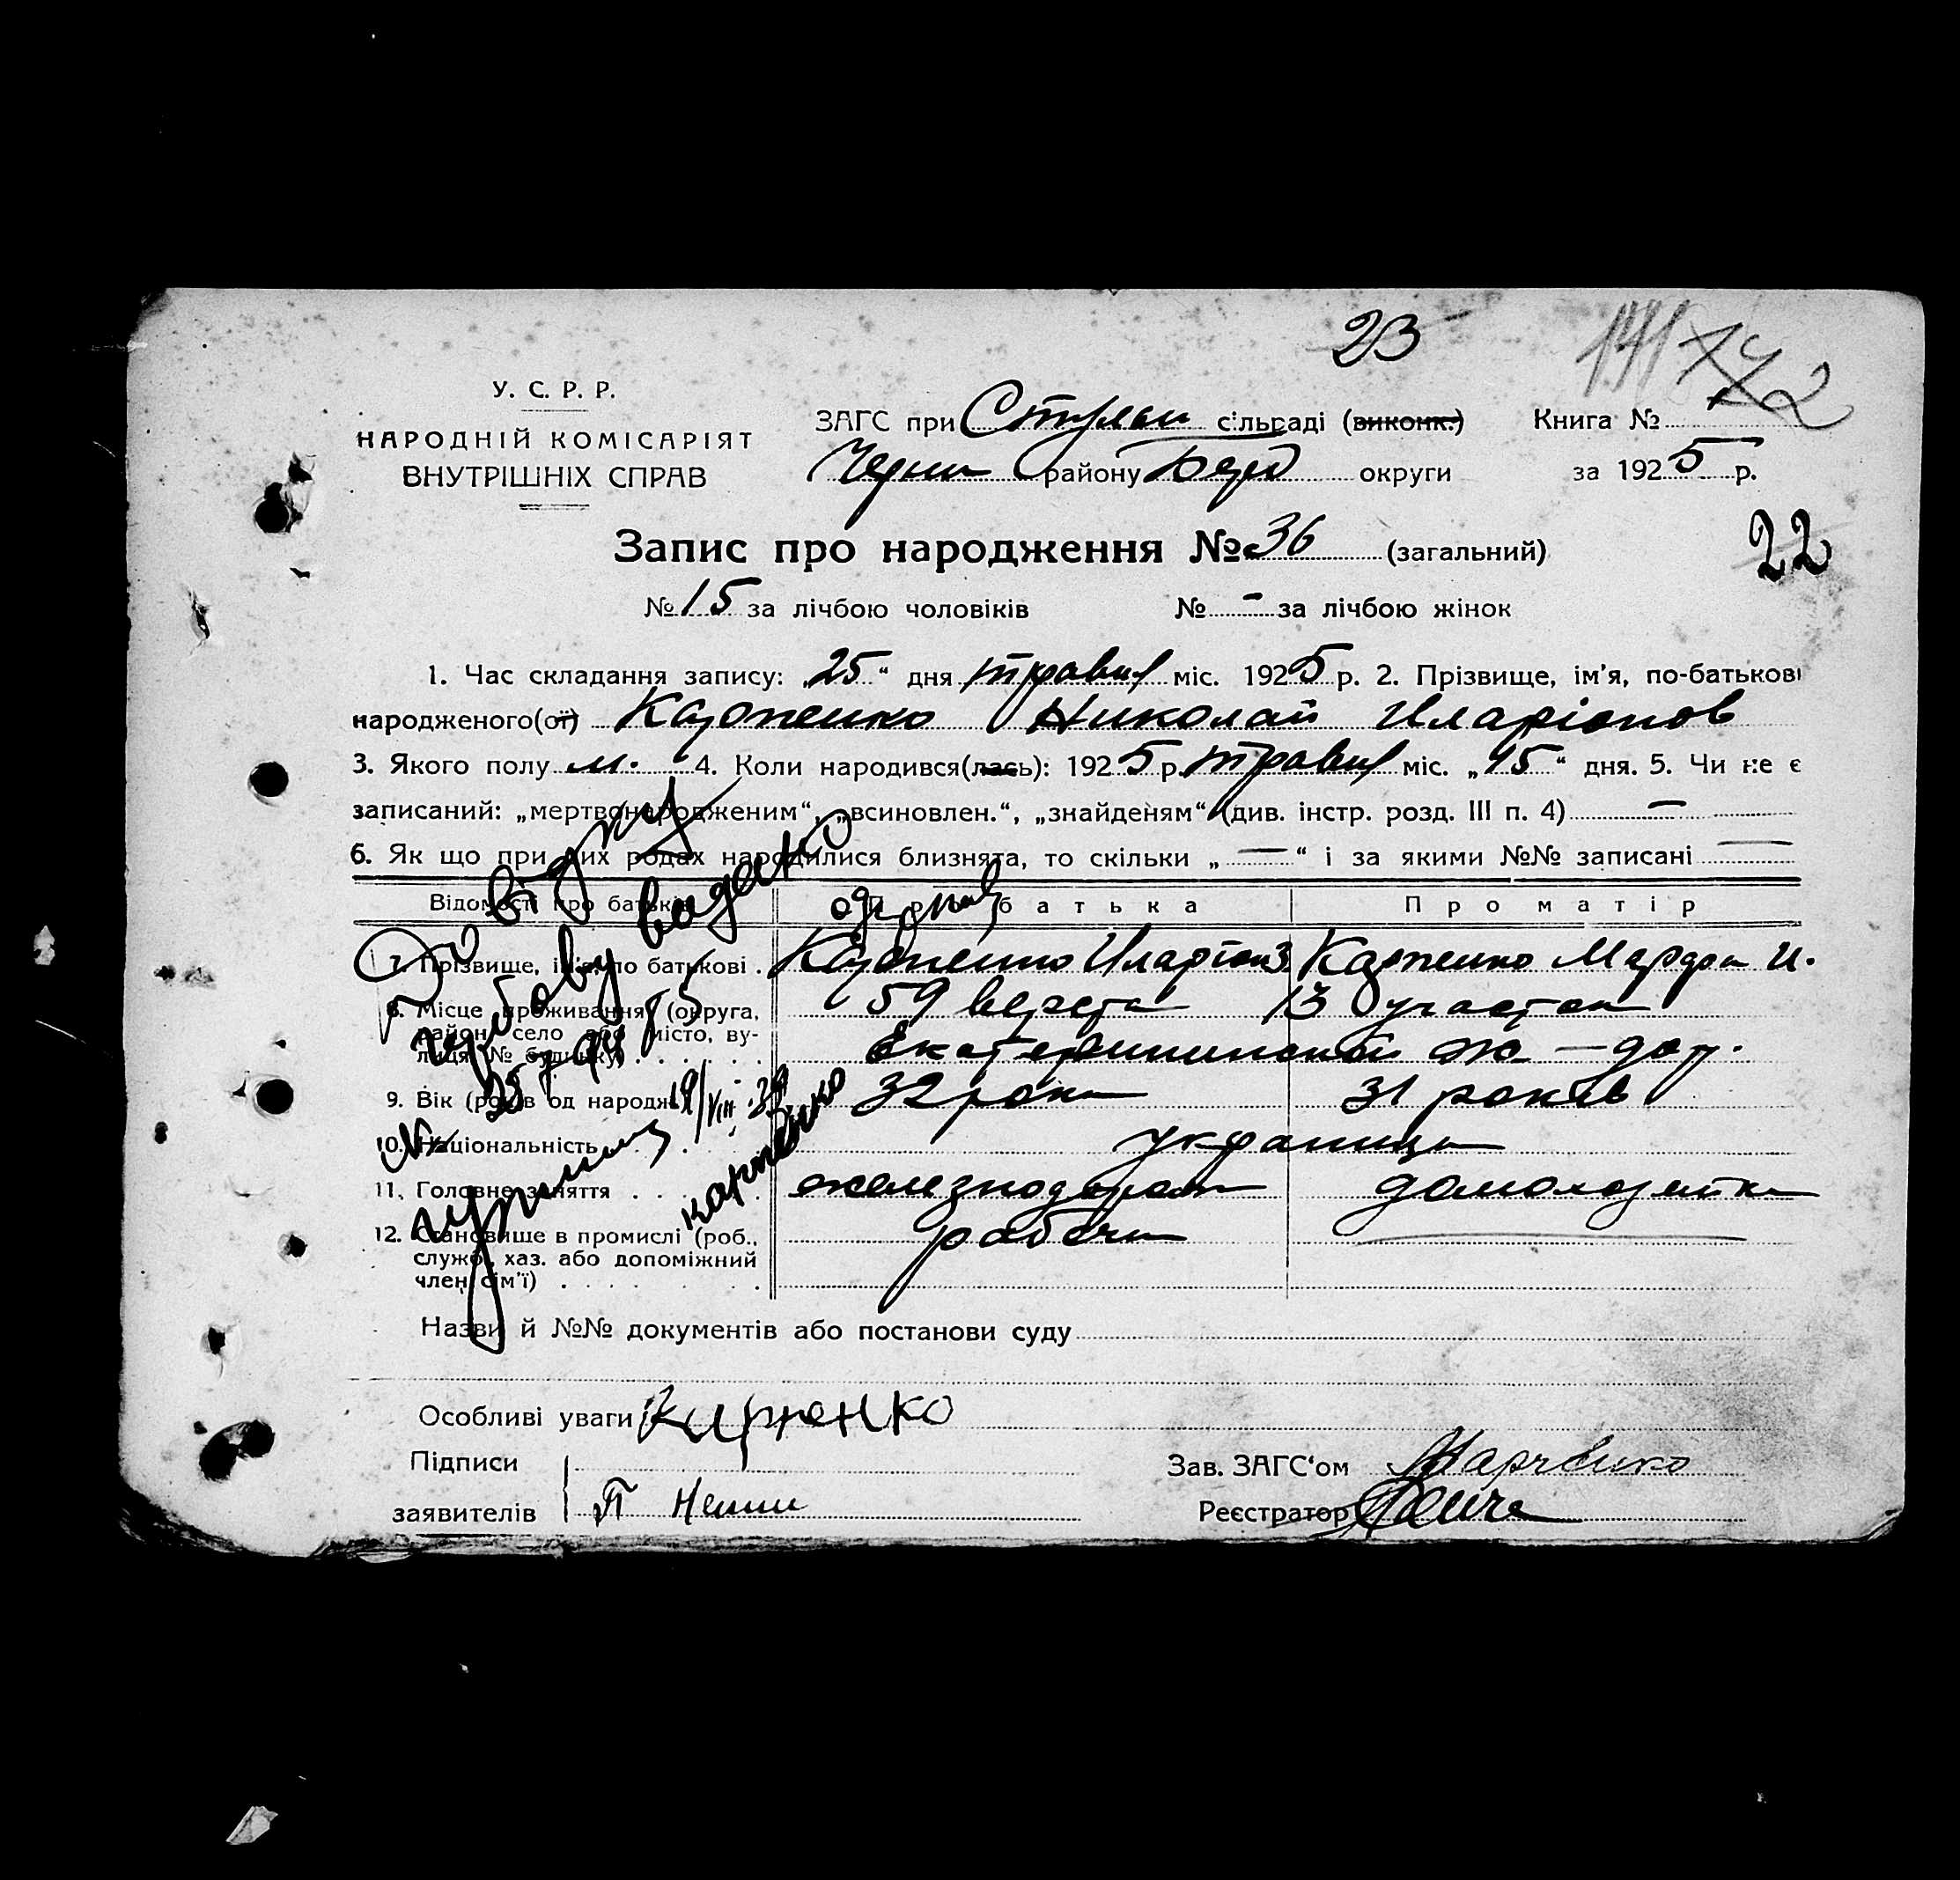 23
У. С. Р. Р.
НАРОДНІЙ КОМІСАРІЯТ
ВНУТРІШНІХ СПРАВ
ЗАГС при сільраді (виконк.) Книга №
району округи за 1925 р.
Запис про народження № 36 (загальний)
22
№ 15 за лічбою чоловіків № - за лічбою жінок
1. Час складання запису: „25“ дня травня міс. 1925 р. 2. Прізвище, ім'я, по-батькові
народженого(ої) Карпенко Николай Иларіонов
3. Якого полу м. 4. Коли народився(лась): 1925 р. травня міс. „15“ дня. 5. Чи не є
записаний: „мертвонародженим“, „всиновлен.“, „знайденям“ (див. інстр. розд. III п. 4) —
6. Як що при цих родах народилися близнята, то скільки „—“ і за якими №№ записані —
Відомості про батьків Про батька Про матір
7. Прізвище, ім'я, по батькові . Карпенко Иларіон З. Карпенко И.
8. Місце проживання (округа, район, село або місто, вулиця, № будинку) 59 верста 13 участок
Екатерининской ж-дор.
9. Вік (років од народж.) 32 роки 31 років
10. Національність украинці
11. Головне заняття железнодорож домохозяйка
12. Становище в промислі (роб., служб., хаз. або допоміжний член сім'ї) рабочи
До відзну
видано
19/VIII-39
Карпенко
Назви й №№ документів або постанови суду
Особливі уваги Карпенко
Підписи
заявителів
Зав. ЗАГС'ом Марченко
Реєстратор